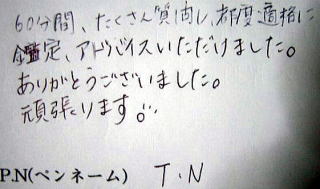 60分間、たくさん質問し、都度適格に
鑑定、アドバイスいただけました。
ありがとうございました。
頑張ります。
P.N(ペンネーム) T.N